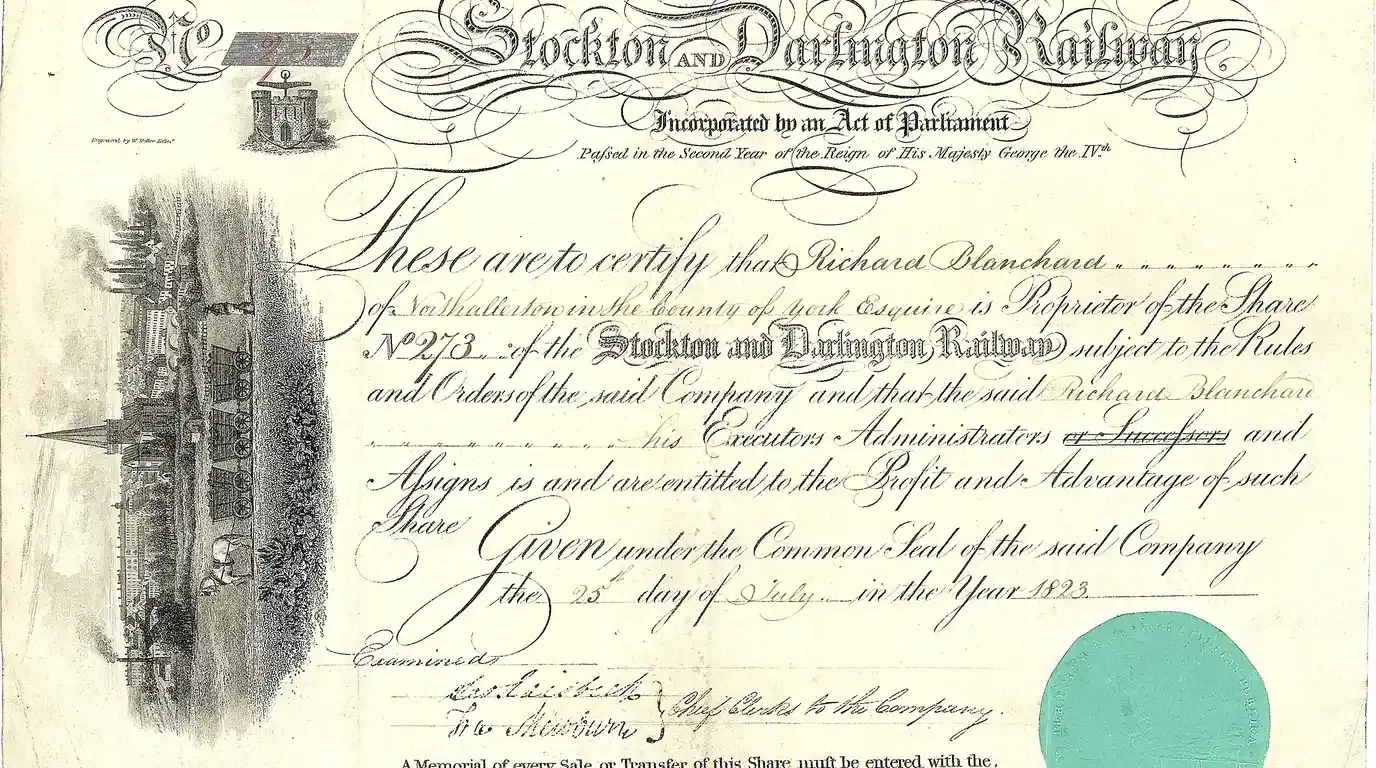 No
Stockton AND Darlington Railway
Incorporated by an Act of Parliament
Paſsed in the Second Year of the Reign of His Majesty George the IV.th
Engraved by W. Edinr
These are to certify that Richard Blanchard
of Northallerton in the County of York Esquire is Proprietor of the Share
No 273 of the Stockton and Darlington Railway subject to the Rules
and Orders of the said Company and that the said Richard Blanchard
his Executors Administrators or Succeſsors and
Aſsigns is and are entitled to the Profit and Advantage of such
Share
Given under the Common Seal of the said Company
the 25th day of July in the Year 1823
Examined
Chief Clerks to the Company.
A Memorial of every Sale or Transfer of this Share muſt be entered with the